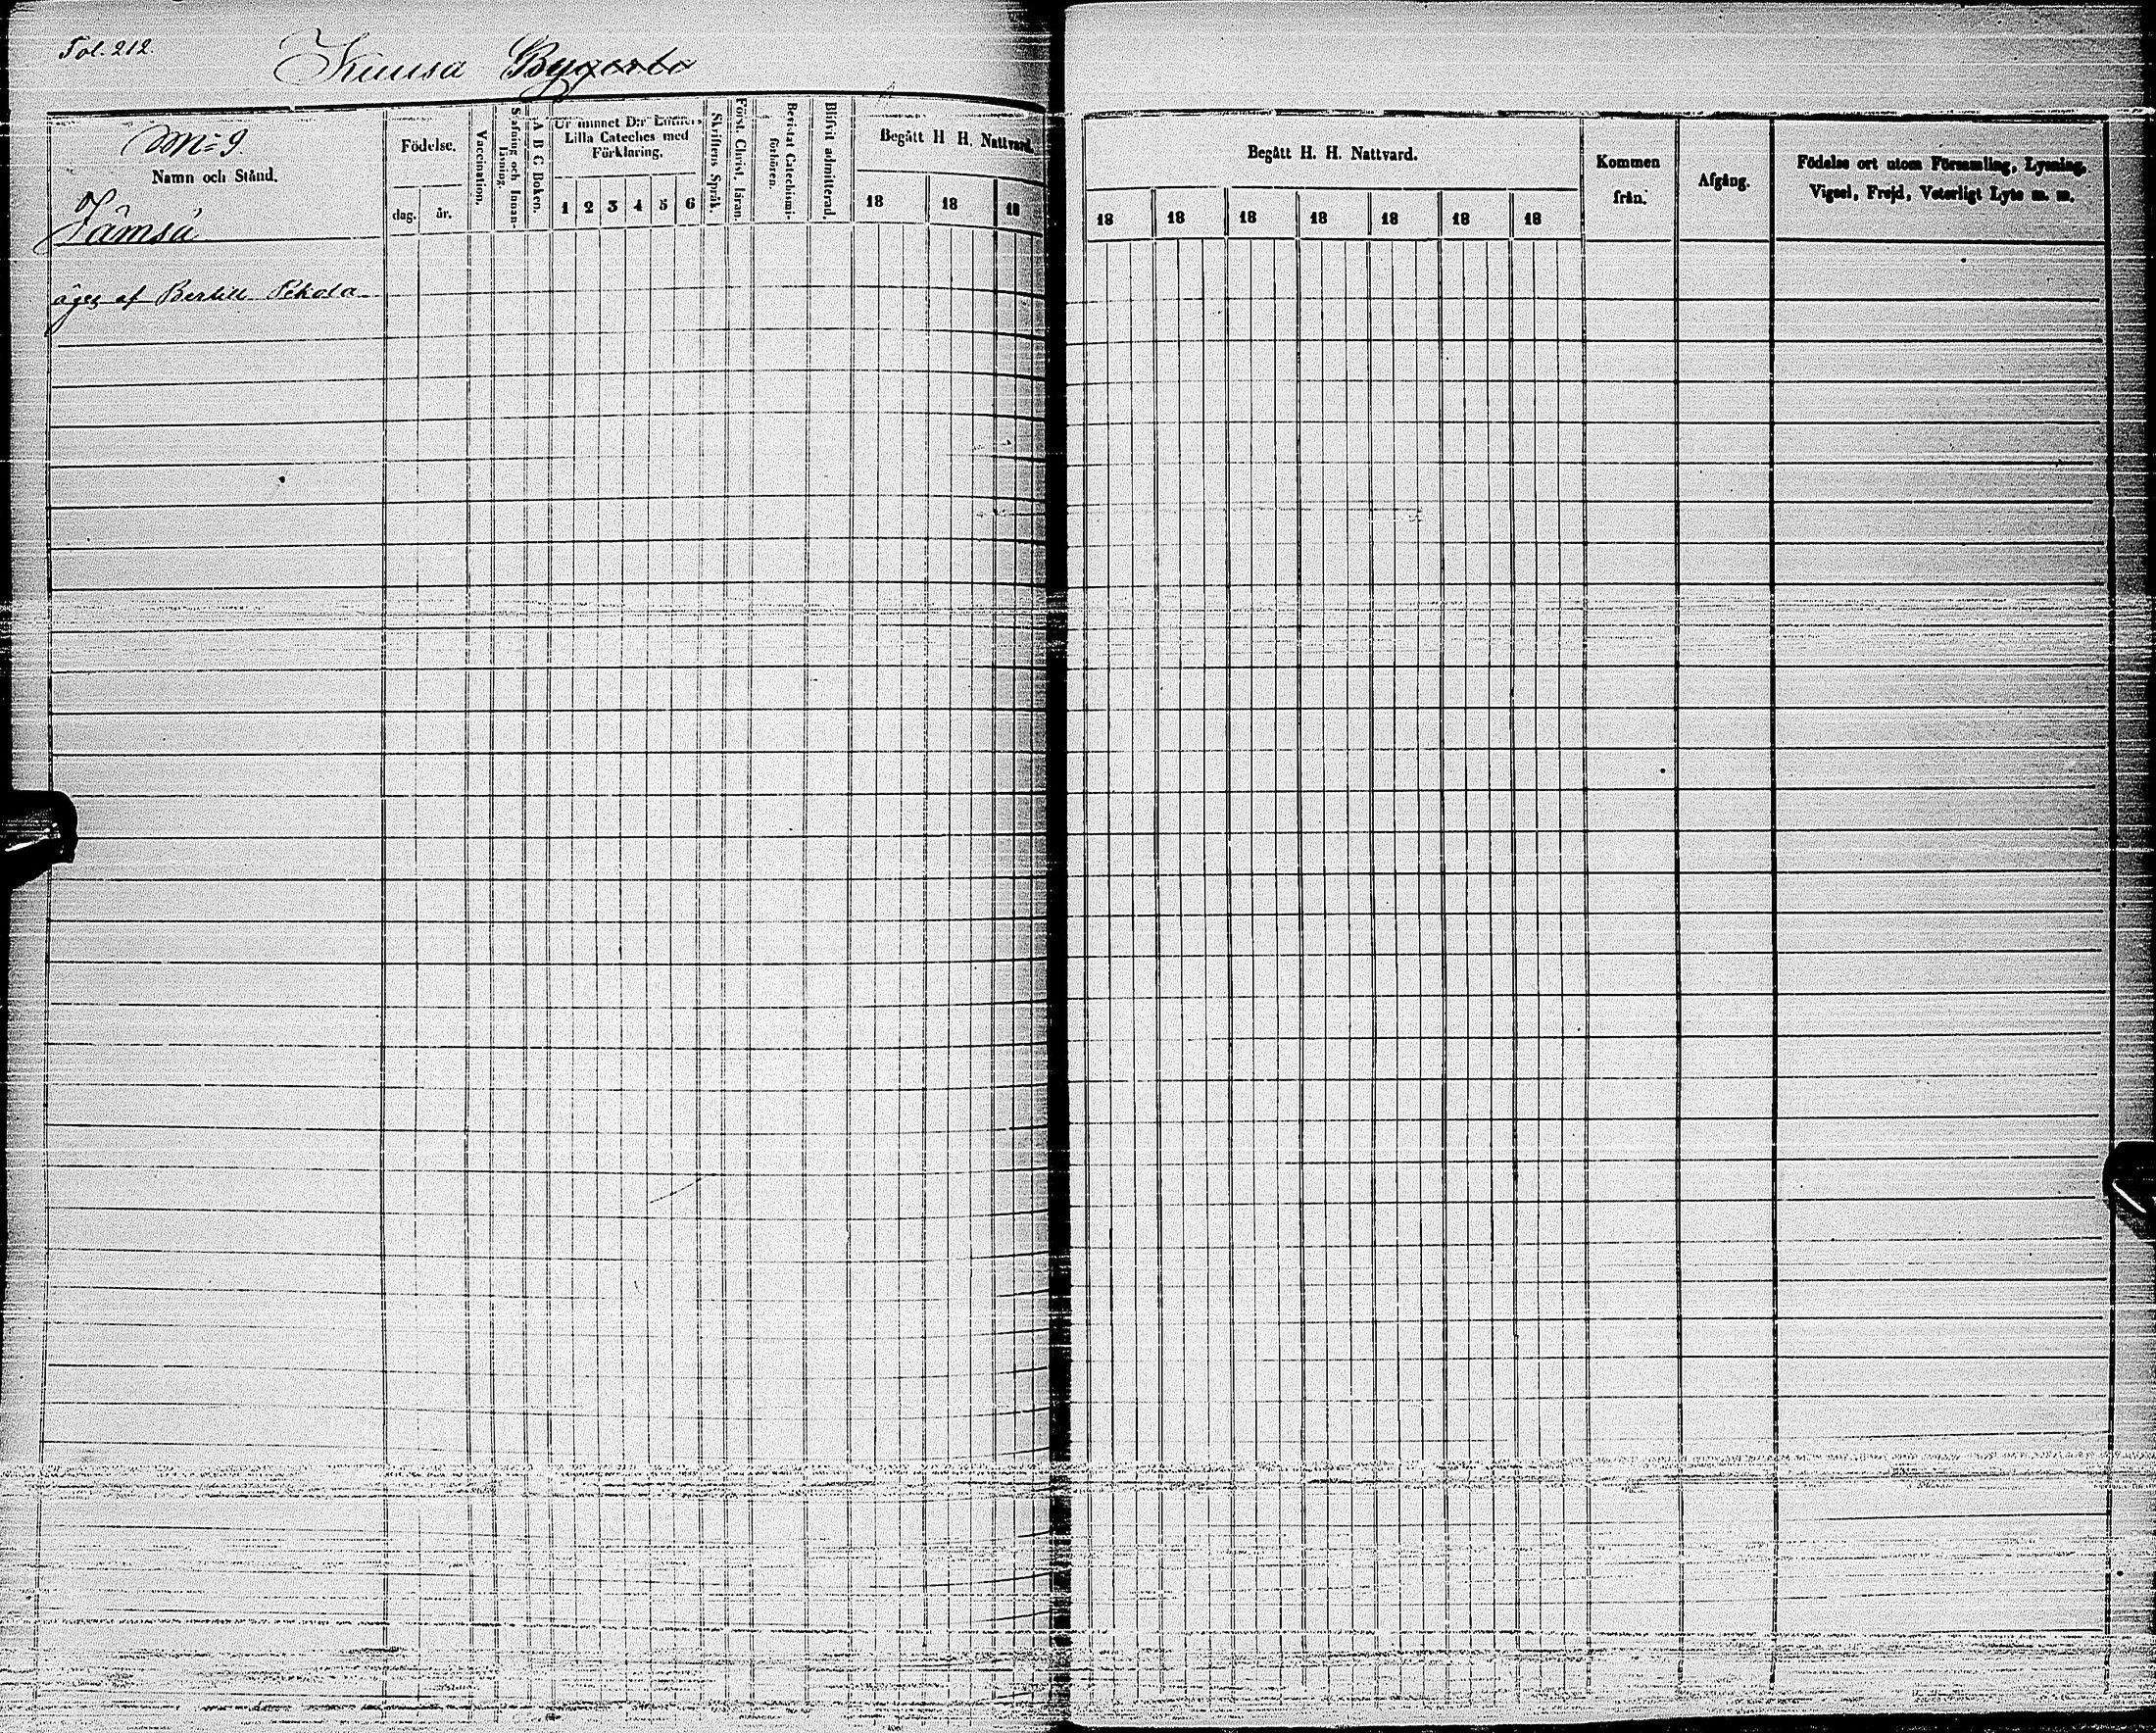 Fol. 212.
Kuusa By
M: 9.
Namn och Stånd.
Födelse.
dag. år.
Vaccination.
Stafning och Innan-
läsning.
A B C Boken.
Ur minnet D:r Luthers
Lilla Cateches med
Förklaring.
1 2 3 4 5 6
Skriftens Språk.
Först. Christ. läran.
Bevistat Catechismi-
förhören.
Blifvit admitterad.
Begått H H. Nattvard.
18 18 18
Jämsä
äges af Bertill Pekola
Begått H. H. Nattvard.
18 18 18 18 18 18 18
Kommen
från.
Afgång.
Födelse ort utom Församling, Lysning,
Vigsel, Frejd, Veterligt Lyte m. m.